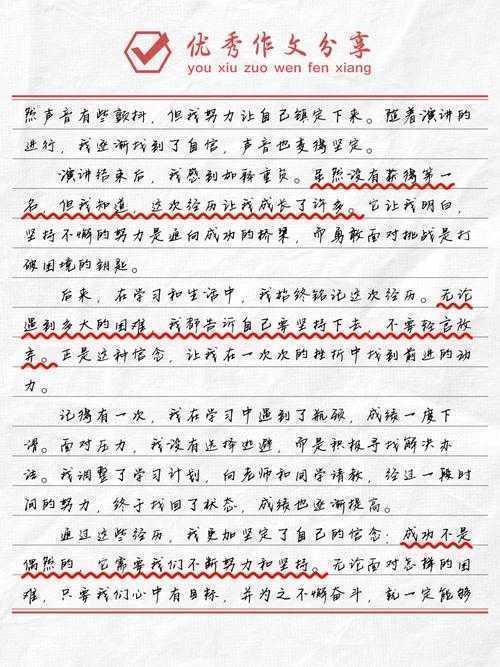 优秀作文分享
you xiu zuo wen fen xiang
然声音有些颤抖，但我努力让自己镇定下来。随着演讲的
进行，我逐渐找到了自信，声音也变得坚定。
演讲结束后，我感到如释重负。虽然没有获得第一
名，但我知道，这次经历让我成长了许多。它让我明白，
坚持不懈的努力是通向成功的桥梁，而勇敢面对挑战是打
破困境的钥匙。
后来，在学习和生活中，我始终铭记这次经历。无论
遇到多大的困难，我都告诉自己要坚持下去，不要轻言放
弃。正是这种信念，让我在一次次的挫折中找到前进的动
力。
记得有一次，我在学习中遇到了瓶颈，成绩一度下
滑。面对压力，我没有选择逃避，而是积极寻找解决办
法。我调整了学习计划，向老师和同学请教，经过一段时
间的努力，终于找回了状态，成绩也逐渐提高。
通过这些经历，我更加坚定了自己的信念：成功不是
偶然的，它需要我们不断努力和坚持。无论面对怎样的困
难，只要我们心中有目标，并为之不懈奋斗，就一定能够